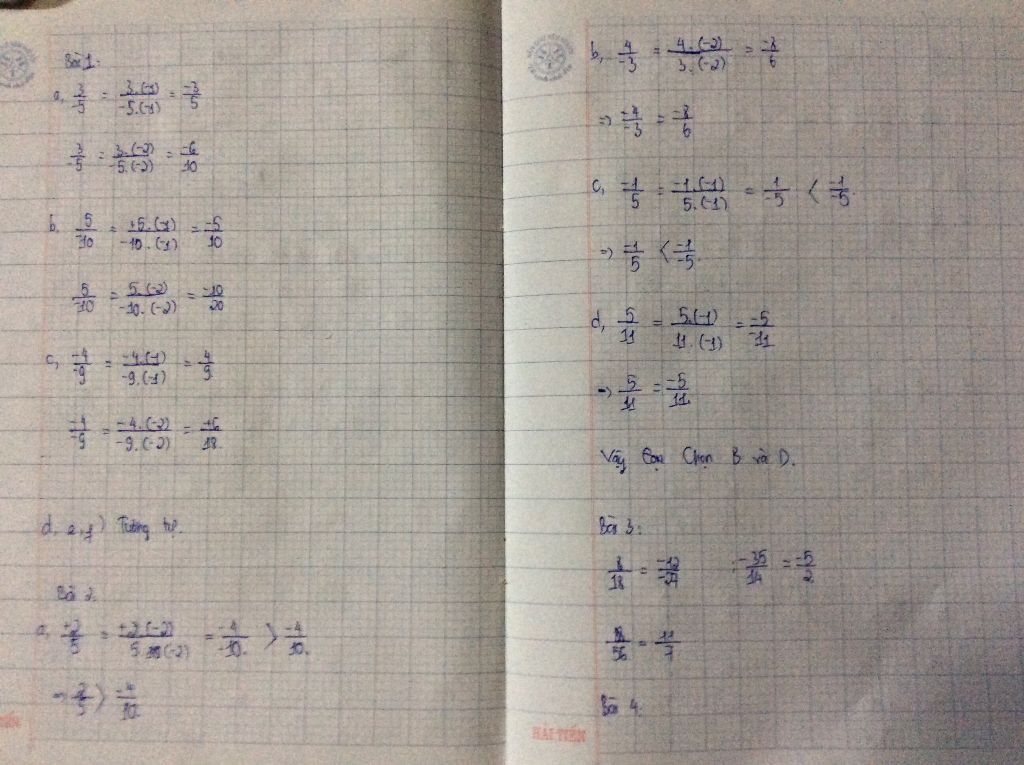 Bài 1:
a, 3/-5 = 3.(-1)/-5.(-1) = -3/5
3/-5 = 3.(-2)/-5.(-2) = -6/10
b, 5/-10 = +5.(-1)/-10.(-1) = -5/10
5/-10 = 5.(-2)/-10.(-2) = -10/20
c, -4/-9 = -4.(-1)/-9.(-1) = 4/9
-4/-9 = -4.(-2)/-9.(-2) = +6/18.
d, e, f) Tương tự.
Bài 2.
a, +2/5 = +2(-2)/5(-2) = -4/-10. > -4/10.
=> 2/5 > -4/10
HẢI TIẾN
b, 4/-3 = 4.(-2)/3.(-2) = -8/6
=> -4/-3 = -8/6
c, -1/5 = -1.(-1)/5.(-1) = 1/-5 < -1/-5.
=> -1/5 < -1/-5.
d, 5/11 = 5.(-1)/11.(-1) = -5/-11
=> 5/11 = -5/11.
Vậy Chọn B và D.
Bài 3:
8/18 = -12/-27 -35/14 = -5/2
/56 = 11/7
Bài 4:
HẢI TIẾN